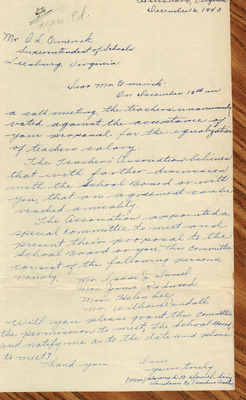 Virginia
December 16, 1940
Mr. O. L. Emerick
Superintendent of Schools
Leesburg, Virginia
Dear Mr. Emerick:
On December 15th in
a call meeting the teachers unanimously
voted against the acceptance of
your proposal for the equalization
of teachers salary.
The Teachers Association believes
that with farther discussion
with the School Board or with
you, that an agreement can be
reached amicably.
The Association appointed a
special committee to meet and
present their proposal to the
School Board or you. This Committee
consist of the following persons
namely,
Mr.
Mrs.
Miss Helen Lee
Mr. William
Will you please grant this committee
the permission to meet the School Board
and notify me as to the date and place
to meet?
Thank you
I am
yours truly
(Mrs)